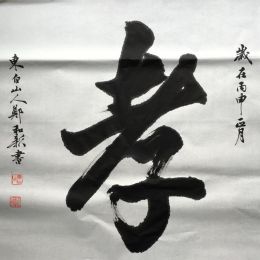 歲在丙申正月
孝
東白山人鄭和新書